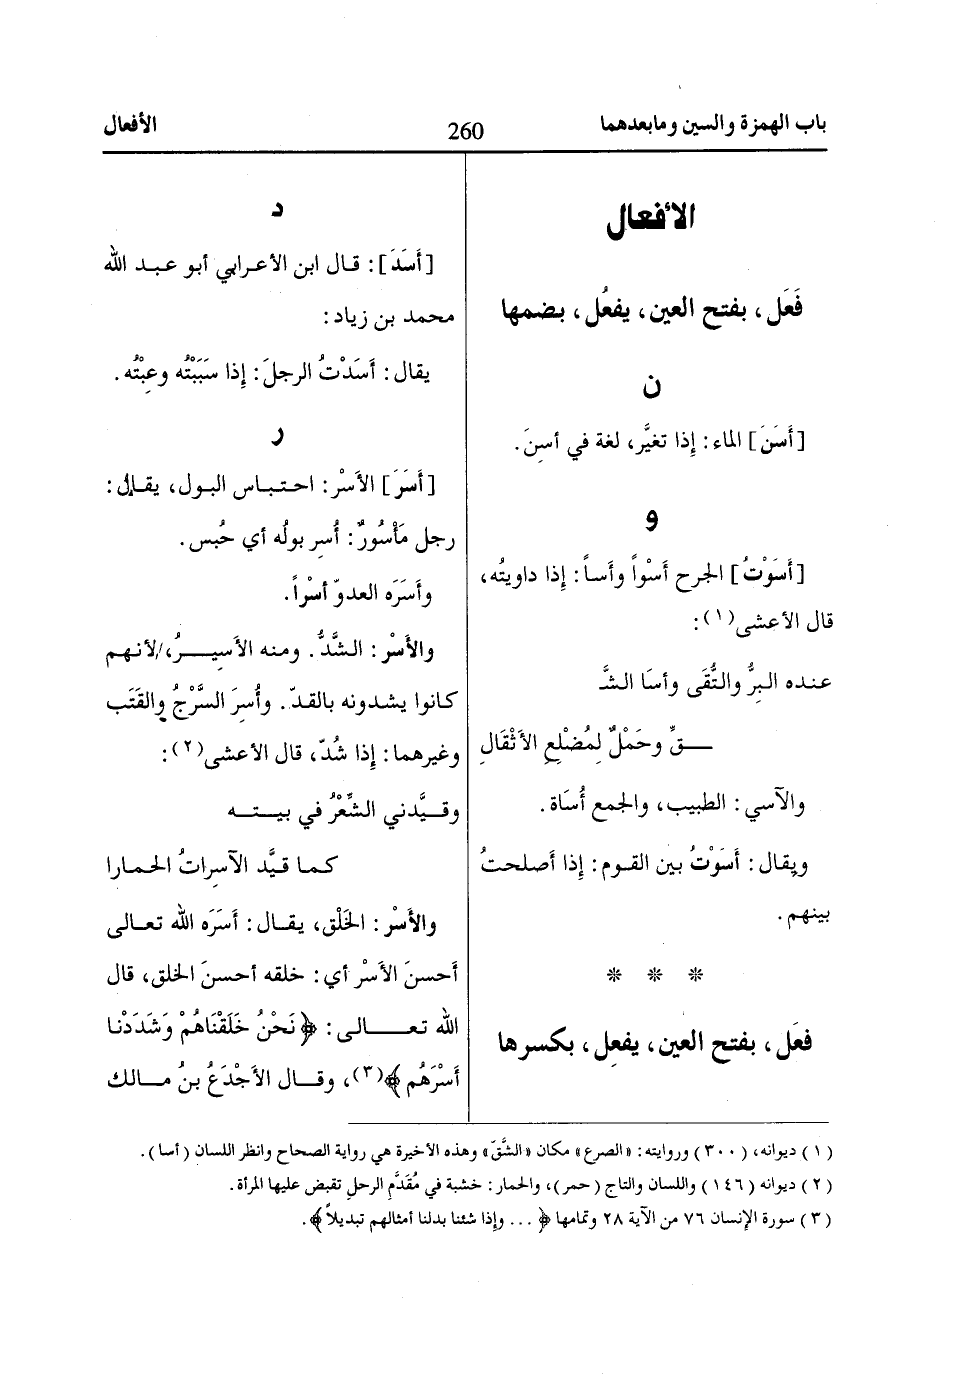 باب الهمزة والسين ومابعدهما
260
الأفعال
الأفعال
فَعَل، بفتح العين، يفعُل، بضمها
ن
[أَسَنَ] الماء: إذا تغيَّر، لغة في أسِنَ.
و
[أَسَوْتُ] الجرح أَسْواً وأَساً: إذا داويتُه،
قال الأعشى(١):
عنده البِرُّ والتُّقَى وأسَا الشَّـ
ـــقِّ وحَمْلٌ لِمُضْلِعِ الأَثْقَالِ
والآسي: الطبيب، والجمع أُسَاة.
ويقال: أَسَوْتُ بين القوم: إذا أصلحتُ
بينهم.
* * *
فعَل، بفتح العين، يفعِل، بكسرها
د
[أَسَدَ]: قال ابن الأعرابي أبو عبد الله
محمد بن زياد:
يقال: أَسَدْتُ الرجلَ: إذا سَبَبْتُه وعِبْتُه.
ر
[أَسَرَ] الأَسْر: احتباس البول، يقال:
رجل مَأْسُورٌ: أُسِر بولُه أي حُبس.
وأَسَرَه العدوّ أسْراً.
والأسْر: الشَّدُّ. ومنه الأَسيــرُ، لأنهم
كانوا يشدونه بالقدّ. وأُسِرَ السَّرْجُ والقَتَب
وغيرهما: إذا شُدّ، قال الأعشى(٢):
وقيَّدني الشِّعْرُ في بيتــه
كما قيَّد الآسِراتُ الحمارا
والأسْر: الخَلْق، يقال: أَسَرَه الله تعالى
أحسنَ الأَسْر أي: خلقه أحسنَ الخلق، قال
الله تعــالى: ﴿نَحْنُ خَلَقْنَاهُمْ وَشَدَدْنَا
أَسْرَهُم﴾(٣)، وقال الأَجْدَعُ بنُ مالك
(١) ديوانه، (٣٠٠) وروايته: «الصرع» مكان «الشَّقّ» وهذه الأخيرة هي رواية الصحاح وانظر اللسان (أسا).
(٢) ديوانه (١٤٦) واللسان والتاج (حمر)، والحمار: خشبة في مُقَدَّمِ الرحلِ تقبض عليها المرأة.
(٣) سورة الإنسان ٧٦ من الآية ٢٨ وتمامها ﴿... وإذا شئنا بدلنا أمثالهم تبديلاً﴾.